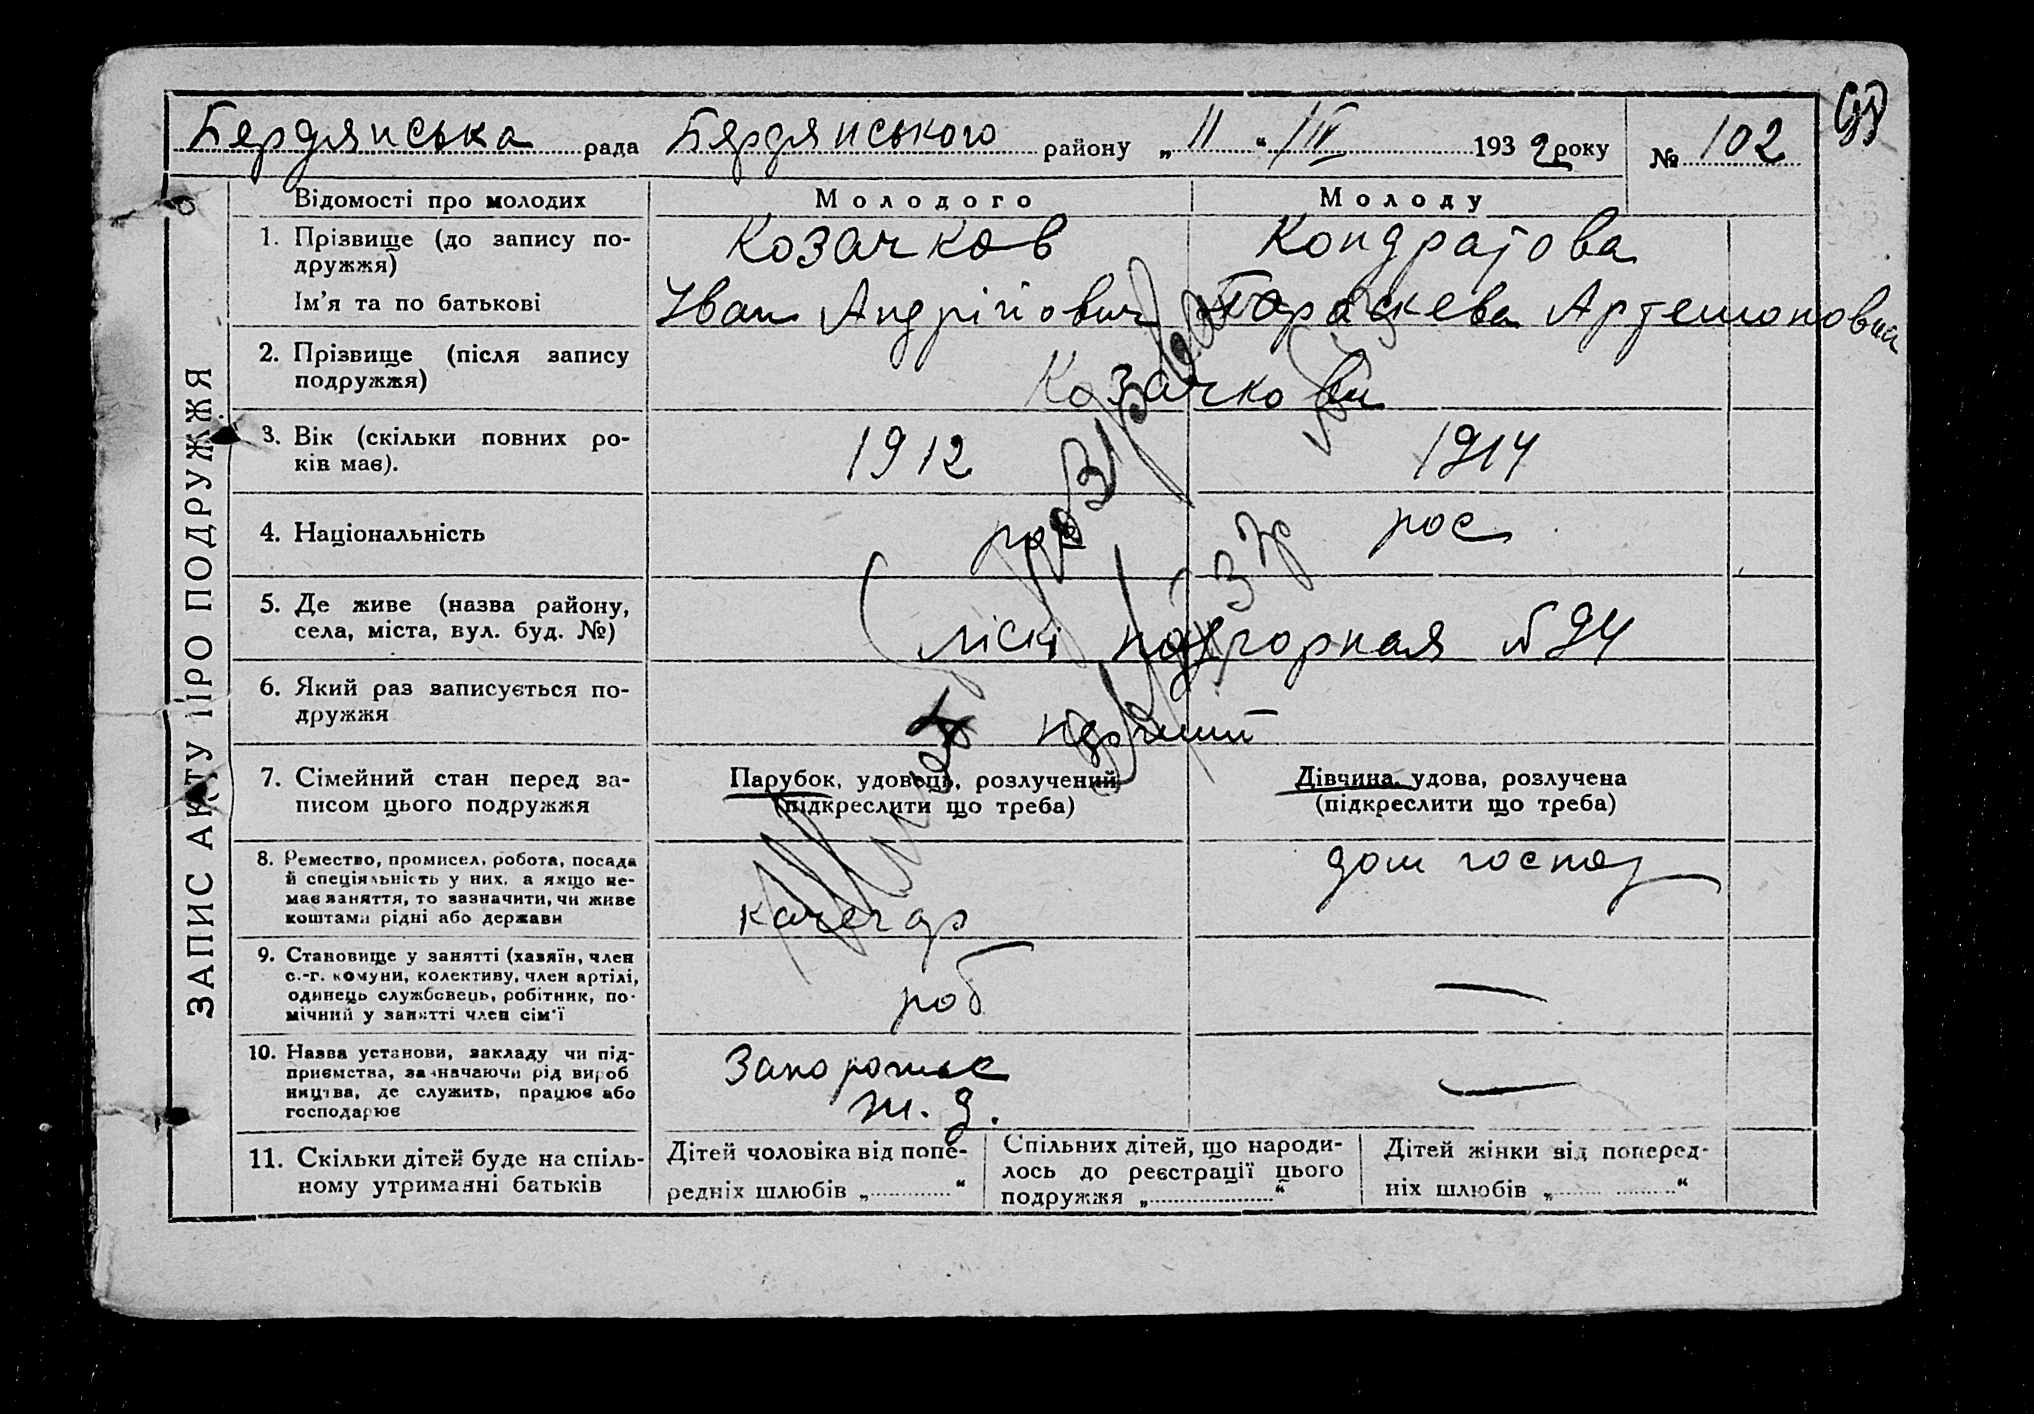 Бердянська рада Бердянського району „ 11 “ IV 1932 року № 102
ЗАПИС АКТУ ПРО ПОДРУЖЖЯ
Відомості про молодих Молодого Молоду
1. Прізвище (до запису по-
дружжя)
Козачков Кондратова
Ім'я та по батькові Іван Андрійович Параскева Артемоновна
2. Прізвище (після запису
подружжя)
Козачкови
3. Вік (скільки повних ро-
ків має).
1912 1914
4. Національність рос рос
5. Де живе (назва району,
села, міста, вул. буд. №)
ліскі подгорная № 94
6. Який раз записується по-
дружжя
7. Сімейний стан перед за-
писом цього подружжя
Парубок, удовець, розлучений Дівчина, удова, розлучена
(підкреслити що треба) (підкреслити що треба)
8. Ремество, промисел, робота, посада
й спеціяльність у них, а якщо не-
має заняття, то зазначити, чи живе
коштами рідні або держави
кочегар дом господ
9. Становище у занятті (хазяїн, член
с.-г. комуни, колективу, член артілі,
одинець службовець, робітник, по-
мічний у занятті член сім'ї
роб —
10. Назва установи, закладу чи під-
приємства, зазначаючи рід вироб
ництва, де служить, працює або
господарює
Запорожье
ж. д. —
11. Скільки дітей буде на спіль-
ному утриманні батьків
Дітей чоловіка від попе-
редніх шлюбів „ “
Спільних дітей, що народи-
лось до реєстрації цього
подружжя „ “
Дітей жінки від поперед-
ніх шлюбів „ “